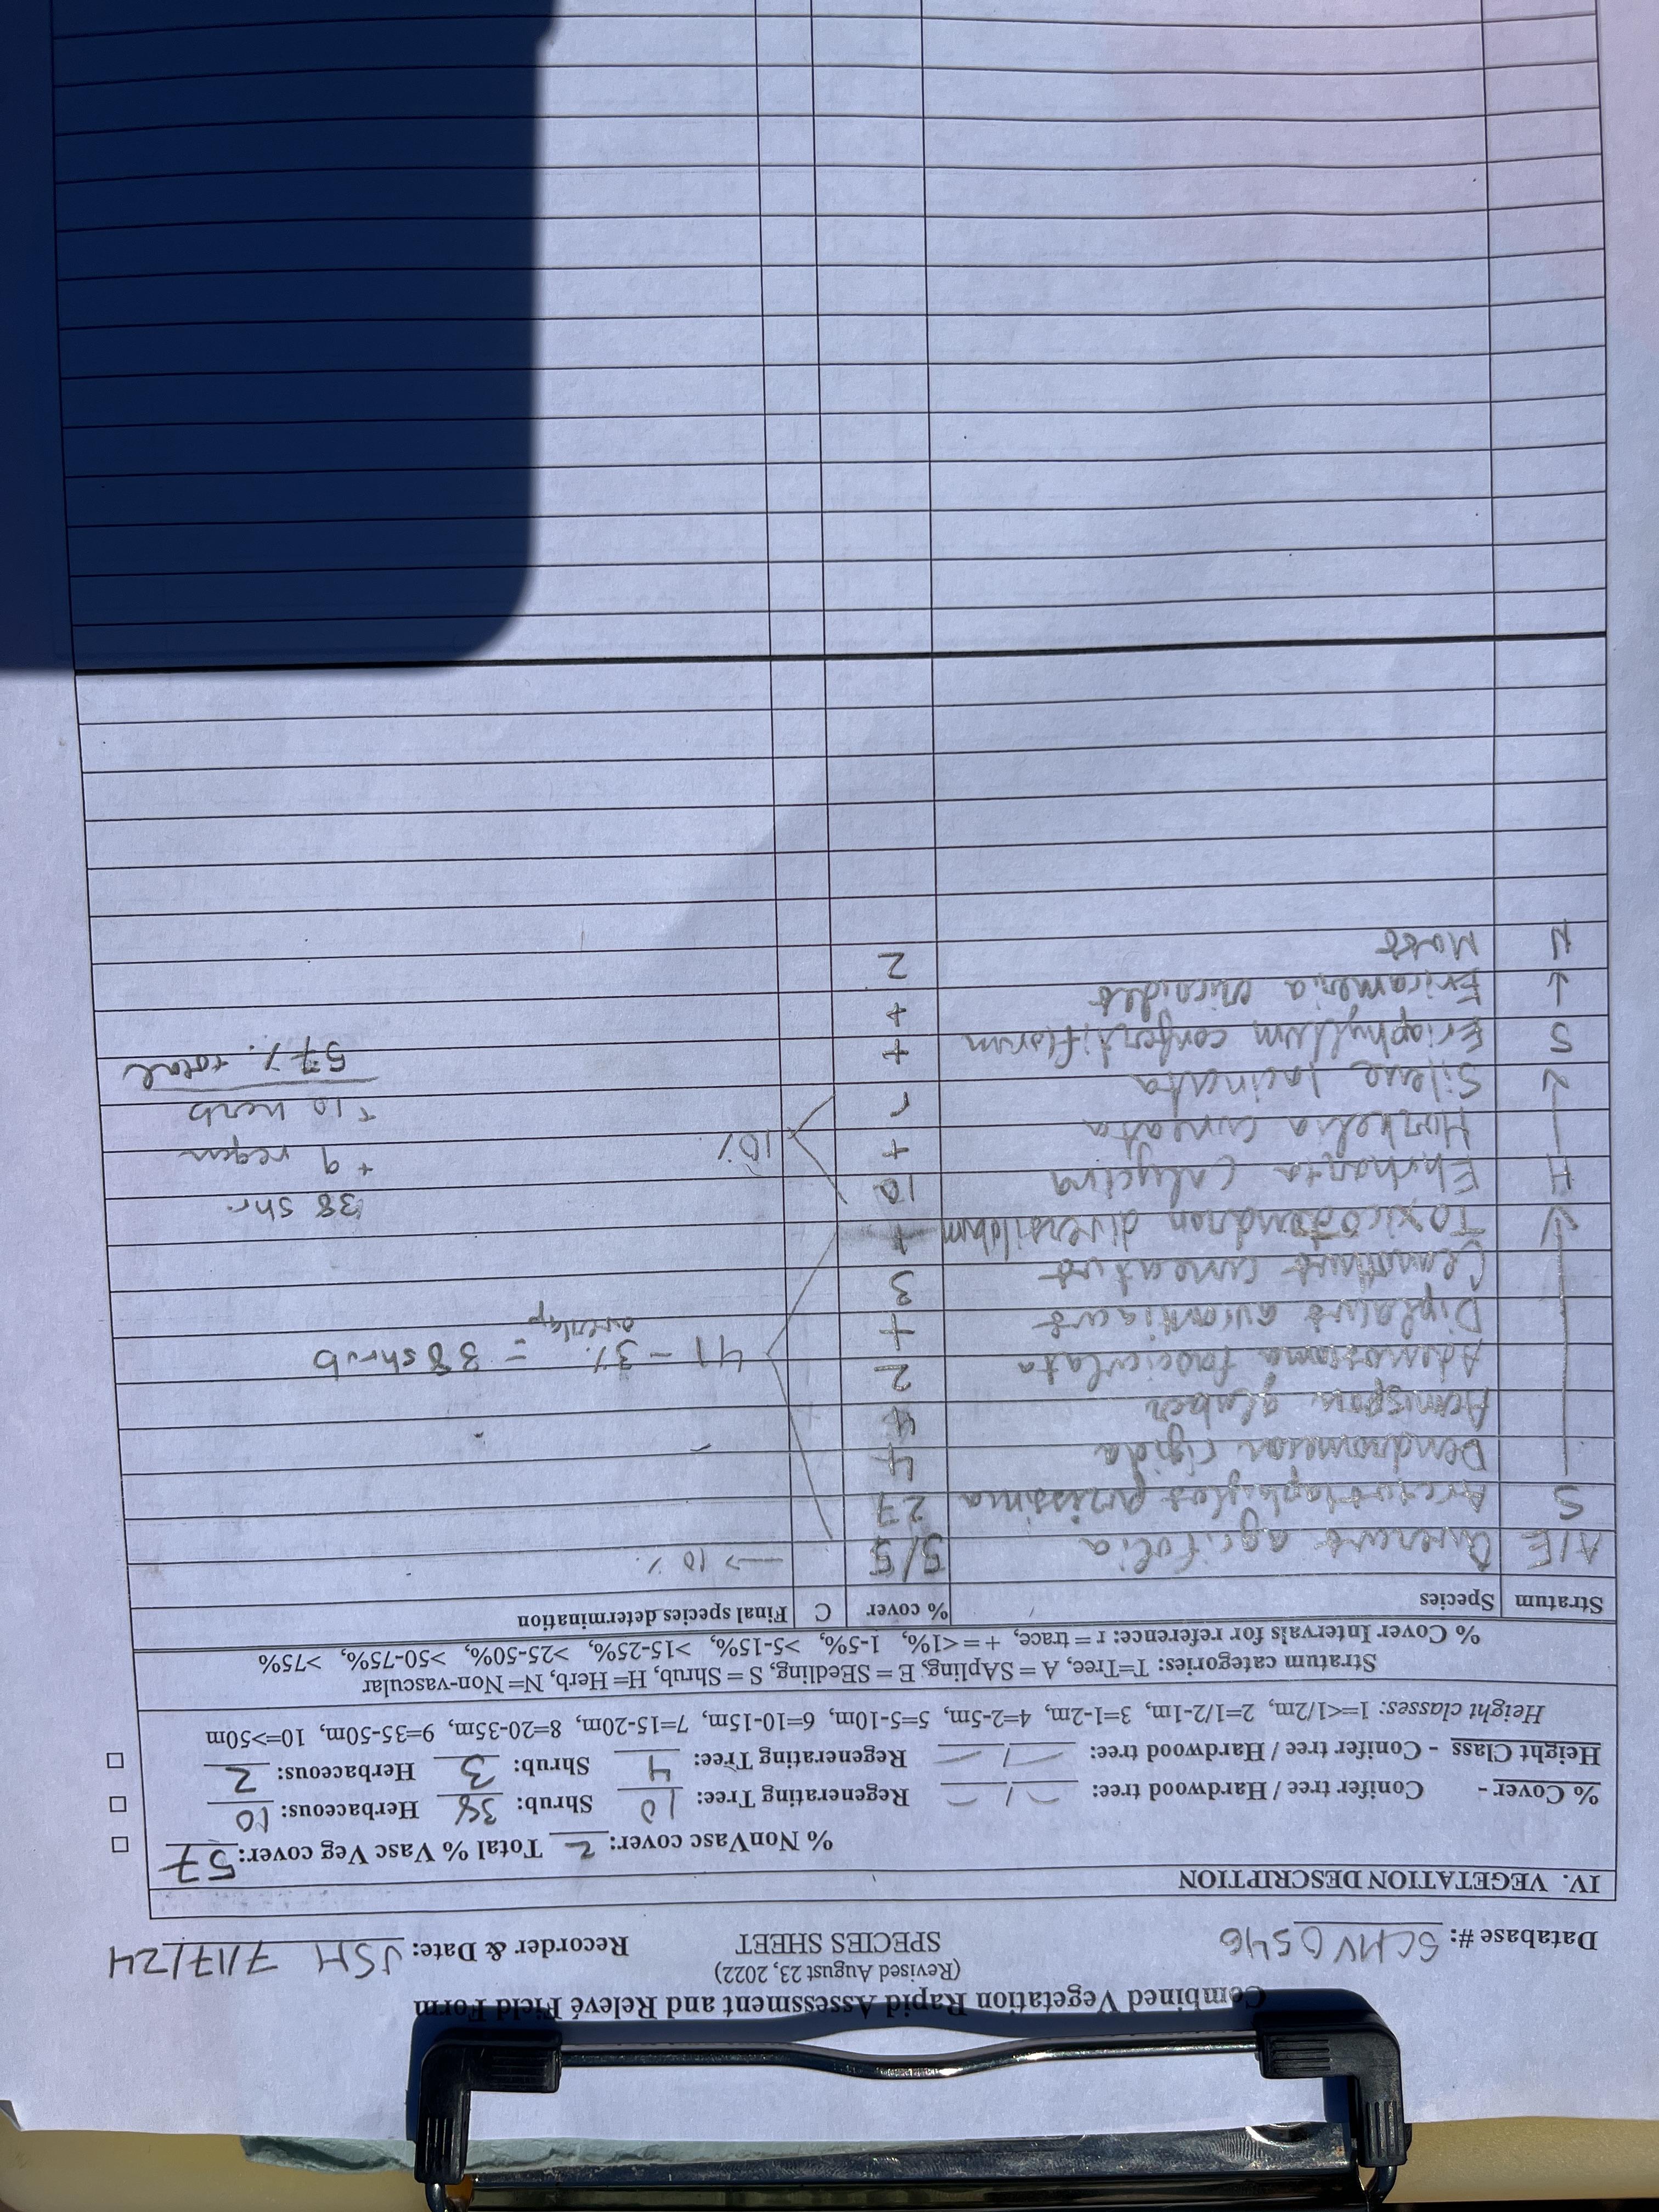 Combined Vegetation Rapid Assessment and Relevé Field Form
(Revised August 23, 2022)
Database #: SCMV0546 SPECIES SHEET Recorder & Date: JSH 7/17/24
IV. VEGETATION DESCRIPTION
% NonVasc cover: 2 Total % Vasc Veg cover: 57
% Cover - Conifer tree / Hardwood tree: — / — Regenerating Tree: 10 Shrub: 38 Herbaceous: 10
Height Class - Conifer tree / Hardwood tree: — / — Regenerating Tree: 4 Shrub: 3 Herbaceous: 2
Height classes: 1=<1/2m, 2=1/2-1m, 3=1-2m, 4=2-5m, 5=5-10m, 6=10-15m, 7=15-20m, 8=20-35m, 9=35-50m, 10=>50m
Stratum categories: T=Tree, A = SApling, E = SEedling, S = Shrub, H= Herb, N= Non-vascular
% Cover Intervals for reference: r = trace, + = <1%, 1-5%, >5-15%, >15-25%, >25-50%, >50-75%, >75%
Stratum Species % cover C Final species determination
A/E Quercus agrifolia 5/5 → 10%
S Arctostaphylos purissima 27
Dendromecon rigida 4
Acmispon glaber 4
Adenostoma fasciculata 2
41 - 3% overlap = 38 shrub
Diplacus aurantiacus +
Ceanothus cuneatus 3
↓ Toxicodendron diversilobum +
38 shr.
H Ehrharta calycina 10
+ 9 regen
Horkelia cuneata + 10%
+ 10 herb
↓ Silene laciniata r
57% total
S Eriophyllum confertiflorum +
↓ Ericameria ericoides +
N Moss 2